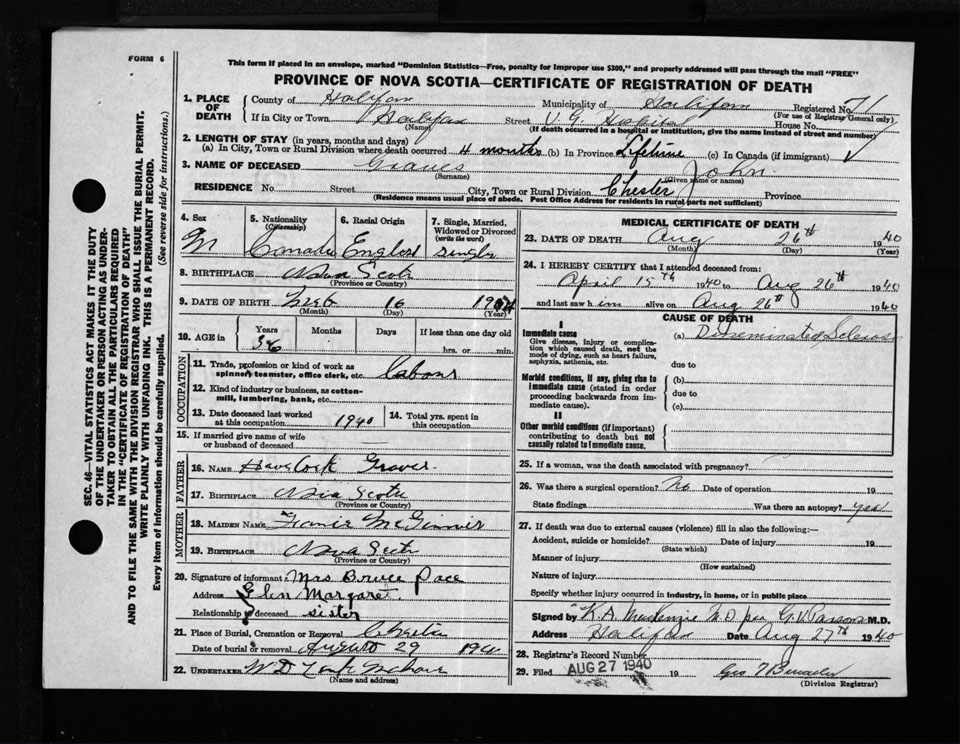 FORM 6
This form if placed in an envelope, marked "Dominion Statistics—Free, penalty for improper use $300," and properly addressed will pass through the mail "FREE"
PROVINCE OF NOVA SCOTIA—CERTIFICATE OF REGISTRATION OF DEATH
SEC. 46—VITAL STATISTICS ACT MAKES IT THE DUTY
OF THE UNDERTAKER OR PERSON ACTING AS UNDER-
TAKER TO OBTAIN ALL THE PARTICULARS REQUIRED
IN THE "CERTIFICATE OF REGISTRATION OF DEATH"
AND TO FILE THE SAME WITH THE DIVISION REGISTRAR WHO SHALL ISSUE THE BURIAL PERMIT.
WRITE PLAINLY WITH UNFADING INK. THIS IS A PERMANENT RECORD.
Every item of information should be carefully supplied. (See reverse side for instructions.)
1. PLACE OF DEATH County of Halifax Municipality of Halifax Registered No. 71
(For use of Registrar General only)
If in City or Town Halifax Street V. G. Hospital House No.
(Name) (If death occurred in a hospital or institution, give the name instead of street and number)
2. LENGTH OF STAY (in years, months and days)
(a) In City, Town or Rural Division where death occurred 4 months (b) In Province Lifetime (c) In Canada (if immigrant)
3. NAME OF DECEASED Graves John
(Surname) (Given name or names)
RESIDENCE No. Street City, Town or Rural Division Chester Province
(Residence means usual place of abode. Post Office Address for residents in rural parts not sufficient)
4. Sex M
5. Nationality (Citizenship) Canada
6. Racial Origin England
7. Single, Married, Widowed or Divorced (write the word) single
8. BIRTHPLACE Nova Scotia
(Province or Country)
9. DATE OF BIRTH Feb 16
(Month) (Day) (Year)
10. AGE in Years Months Days If less than one day old
36 hrs. or min.
OCCUPATION
11. Trade, profession or kind of work as spinner, teamster, office clerk, etc. Labour
12. Kind of industry or business, as cotton-mill, lumbering, bank, etc.
13. Date deceased last worked at this occupation 1940
14. Total yrs. spent in this occupation
15. If married give name of wife or husband of deceased
FATHER
16. NAME Havelock Graves
17. BIRTHPLACE Nova Scotia
(Province or Country)
MOTHER
18. MAIDEN NAME McGinnis
19. BIRTHPLACE Nova Scotia
(Province or Country)
20. Signature of informant Mrs Bruce Pace
Address Glen Margaret
Relationship to deceased sister
21. Place of Burial, Cremation or Removal Chester
Date of burial or removal August 29 1940
22. UNDERTAKER
(Name and address)
MEDICAL CERTIFICATE OF DEATH
23. DATE OF DEATH Aug 26th 1940
(Month) (Day) (Year)
24. I HEREBY CERTIFY that I attended deceased from:
April 15th 1940 to Aug 26th 1940
and last saw him alive on Aug 26th 1940
CAUSE OF DEATH
I
Immediate cause
Give disease, injury or complication which caused death, not the mode of dying, such as heart failure, asphyxia, asthenia, etc.
(a) Disseminated Sclerosis
due to
Morbid conditions, if any, giving rise to immediate cause (stated in order proceeding backwards from immediate cause).
(b)
due to
(c)
II
Other morbid conditions (if important) contributing to death but not causally related to immediate cause.
25. If a woman, was the death associated with pregnancy?
26. Was there a surgical operation? No Date of operation 19
State findings Was there an autopsy? yes
27. If death was due to external causes (violence) fill in also the following:—
Accident, suicide or homicide? Date of injury 19
(State which)
Manner of injury
(How sustained)
Nature of injury
Specify whether injury occurred in industry, in home, or in public place
Signed by K. A. MacKenzie M.D. per G. V. Parsons M.D.
Address Halifax Date Aug 27th 1940
28. Registrar's Record Number
29. Filed AUG 27 1940 19
(Division Registrar)